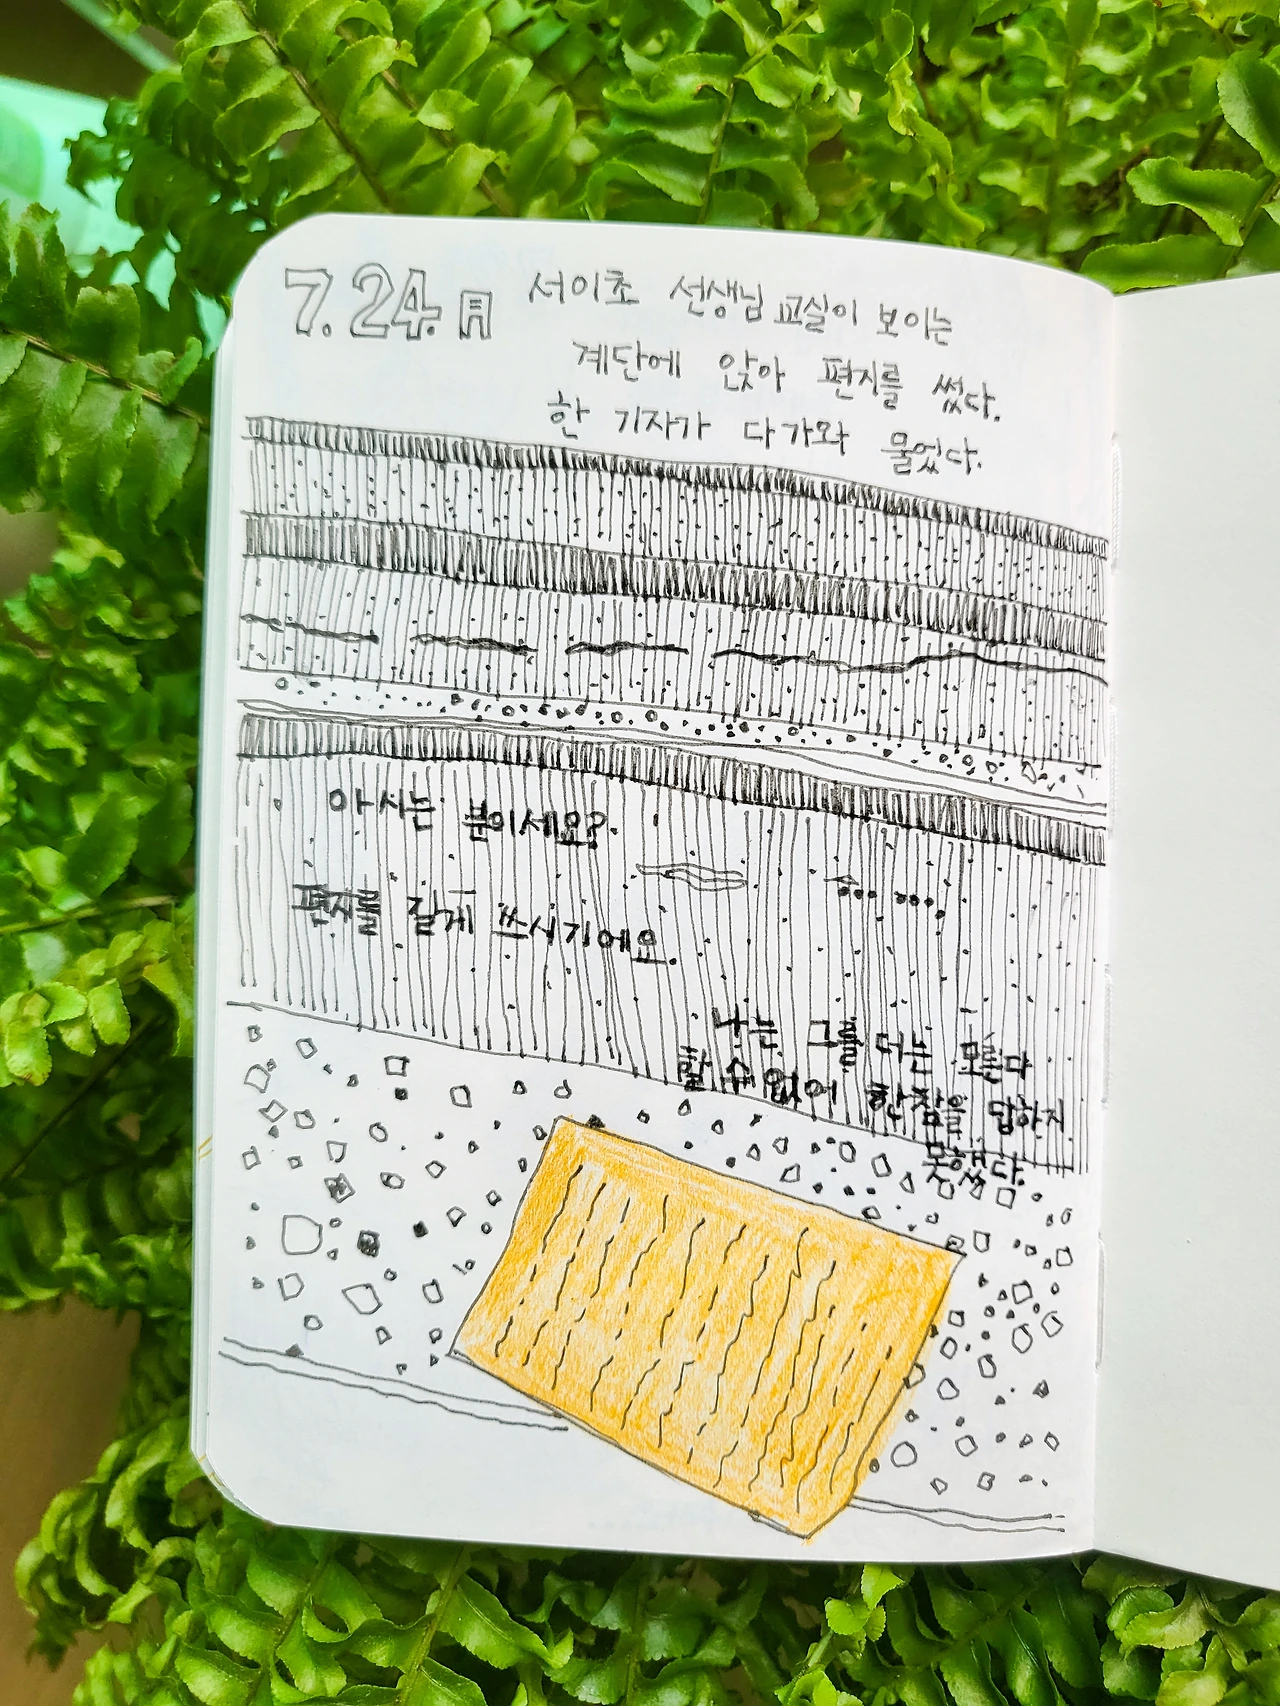 7.24.月 서이초 선생님 교실이 보이는
계단에 앉아 편지를 썼다.
한 기자가 다가와 물었다.
아시는 분이세요?
편지를 길게 쓰시기에요.
나는 그를 더는 모른다
할 수 없어 한참을 답하지
못했다.